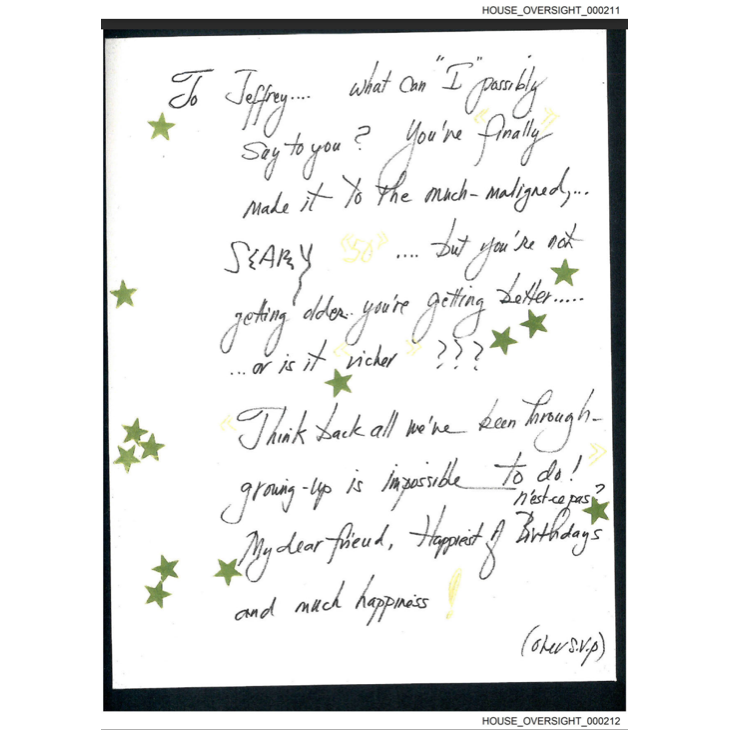 HOUSE_OVERSIGHT_000211
To Jeffrey.... what can "I" possibly
say to you? You've "finally"
made it to the much-maligned,...
SCARY "50" .... but you're not
getting older.. you're getting better.....
...or is it "richer" ???
"Think back all we've been through-
growing-up is impossible to do!"
n'est-ce pas?
My dear friend, Happiest of Birthdays
and much happiness!
(over s.v.p)
HOUSE_OVERSIGHT_000212